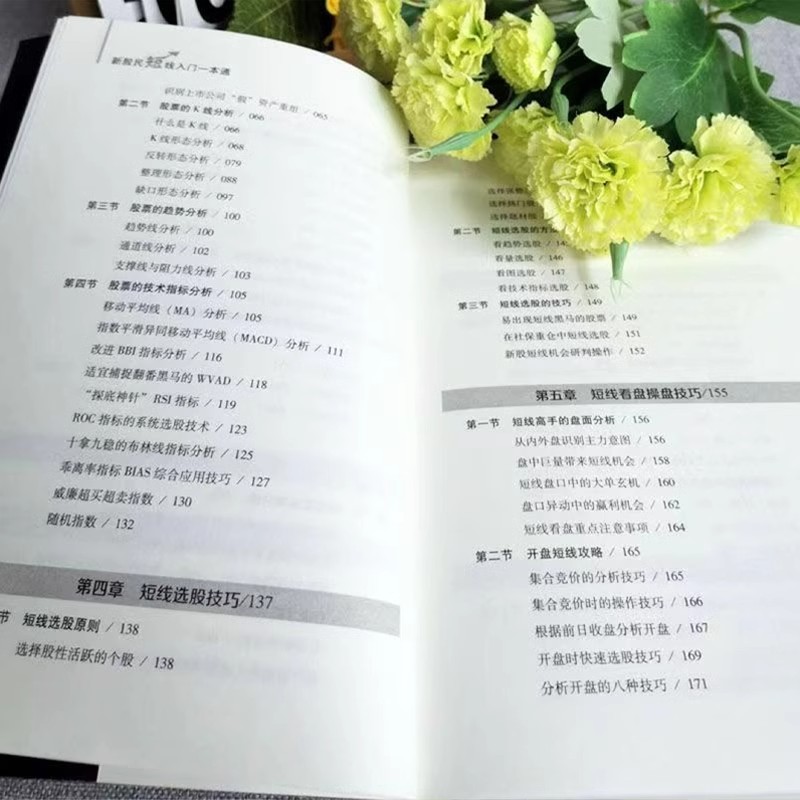 新股民短线入门一本通
识别上市公司“假”资产重组 / 065
第二节 股票的K线分析 / 066
什么是K线 / 066
K线形态分析 / 068
反转形态分析 / 079
整理形态分析 / 088
缺口形态分析 / 097
第三节 股票的趋势分析 / 100
趋势线分析 / 100
通道线分析 / 102
支撑线与阻力线分析 / 103
第四节 股票的技术指标分析 / 105
移动平均线（MA）分析 / 105
指数平滑异同移动平均线（MACD）分析 / 111
改进BBI指标分析 / 116
适宜捕捉翻番黑马的WVAD / 118
“探底神针”RSI指标 / 119
ROC指标的系统选股技术 / 123
十拿九稳的布林线指标分析 / 125
乖离率指标BIAS综合应用技巧 / 127
威廉超买超卖指数 / 130
随机指数 / 132
第四章 短线选股技巧/137
节 短线选股原则 / 138
选择股性活跃的个股 / 138
选择强势
选择热门股
选择题材股
第二节 短线选股的方法
看趋势选股 / 14
看量选股 / 146
看图选股 / 147
看技术指标选股 / 148
第三节 短线选股的技巧 / 149
易出现短线黑马的股票 / 149
在社保重仓中短线选股 / 151
新股短线机会研判操作 / 152
第五章 短线看盘操盘技巧/155
第一节 短线高手的盘面分析 / 156
从内外盘识别主力意图 / 156
盘中巨量带来短线机会 / 158
短线盘口中的大单玄机 / 160
盘口异动中的赢利机会 / 162
短线看盘重点注意事项 / 164
第二节 开盘短线攻略 / 165
集合竞价的分析技巧 / 165
集合竞价时的操作技巧 / 166
根据前日收盘分析开盘 / 167
开盘时快速选股技巧 / 169
分析开盘的八种技巧 / 171